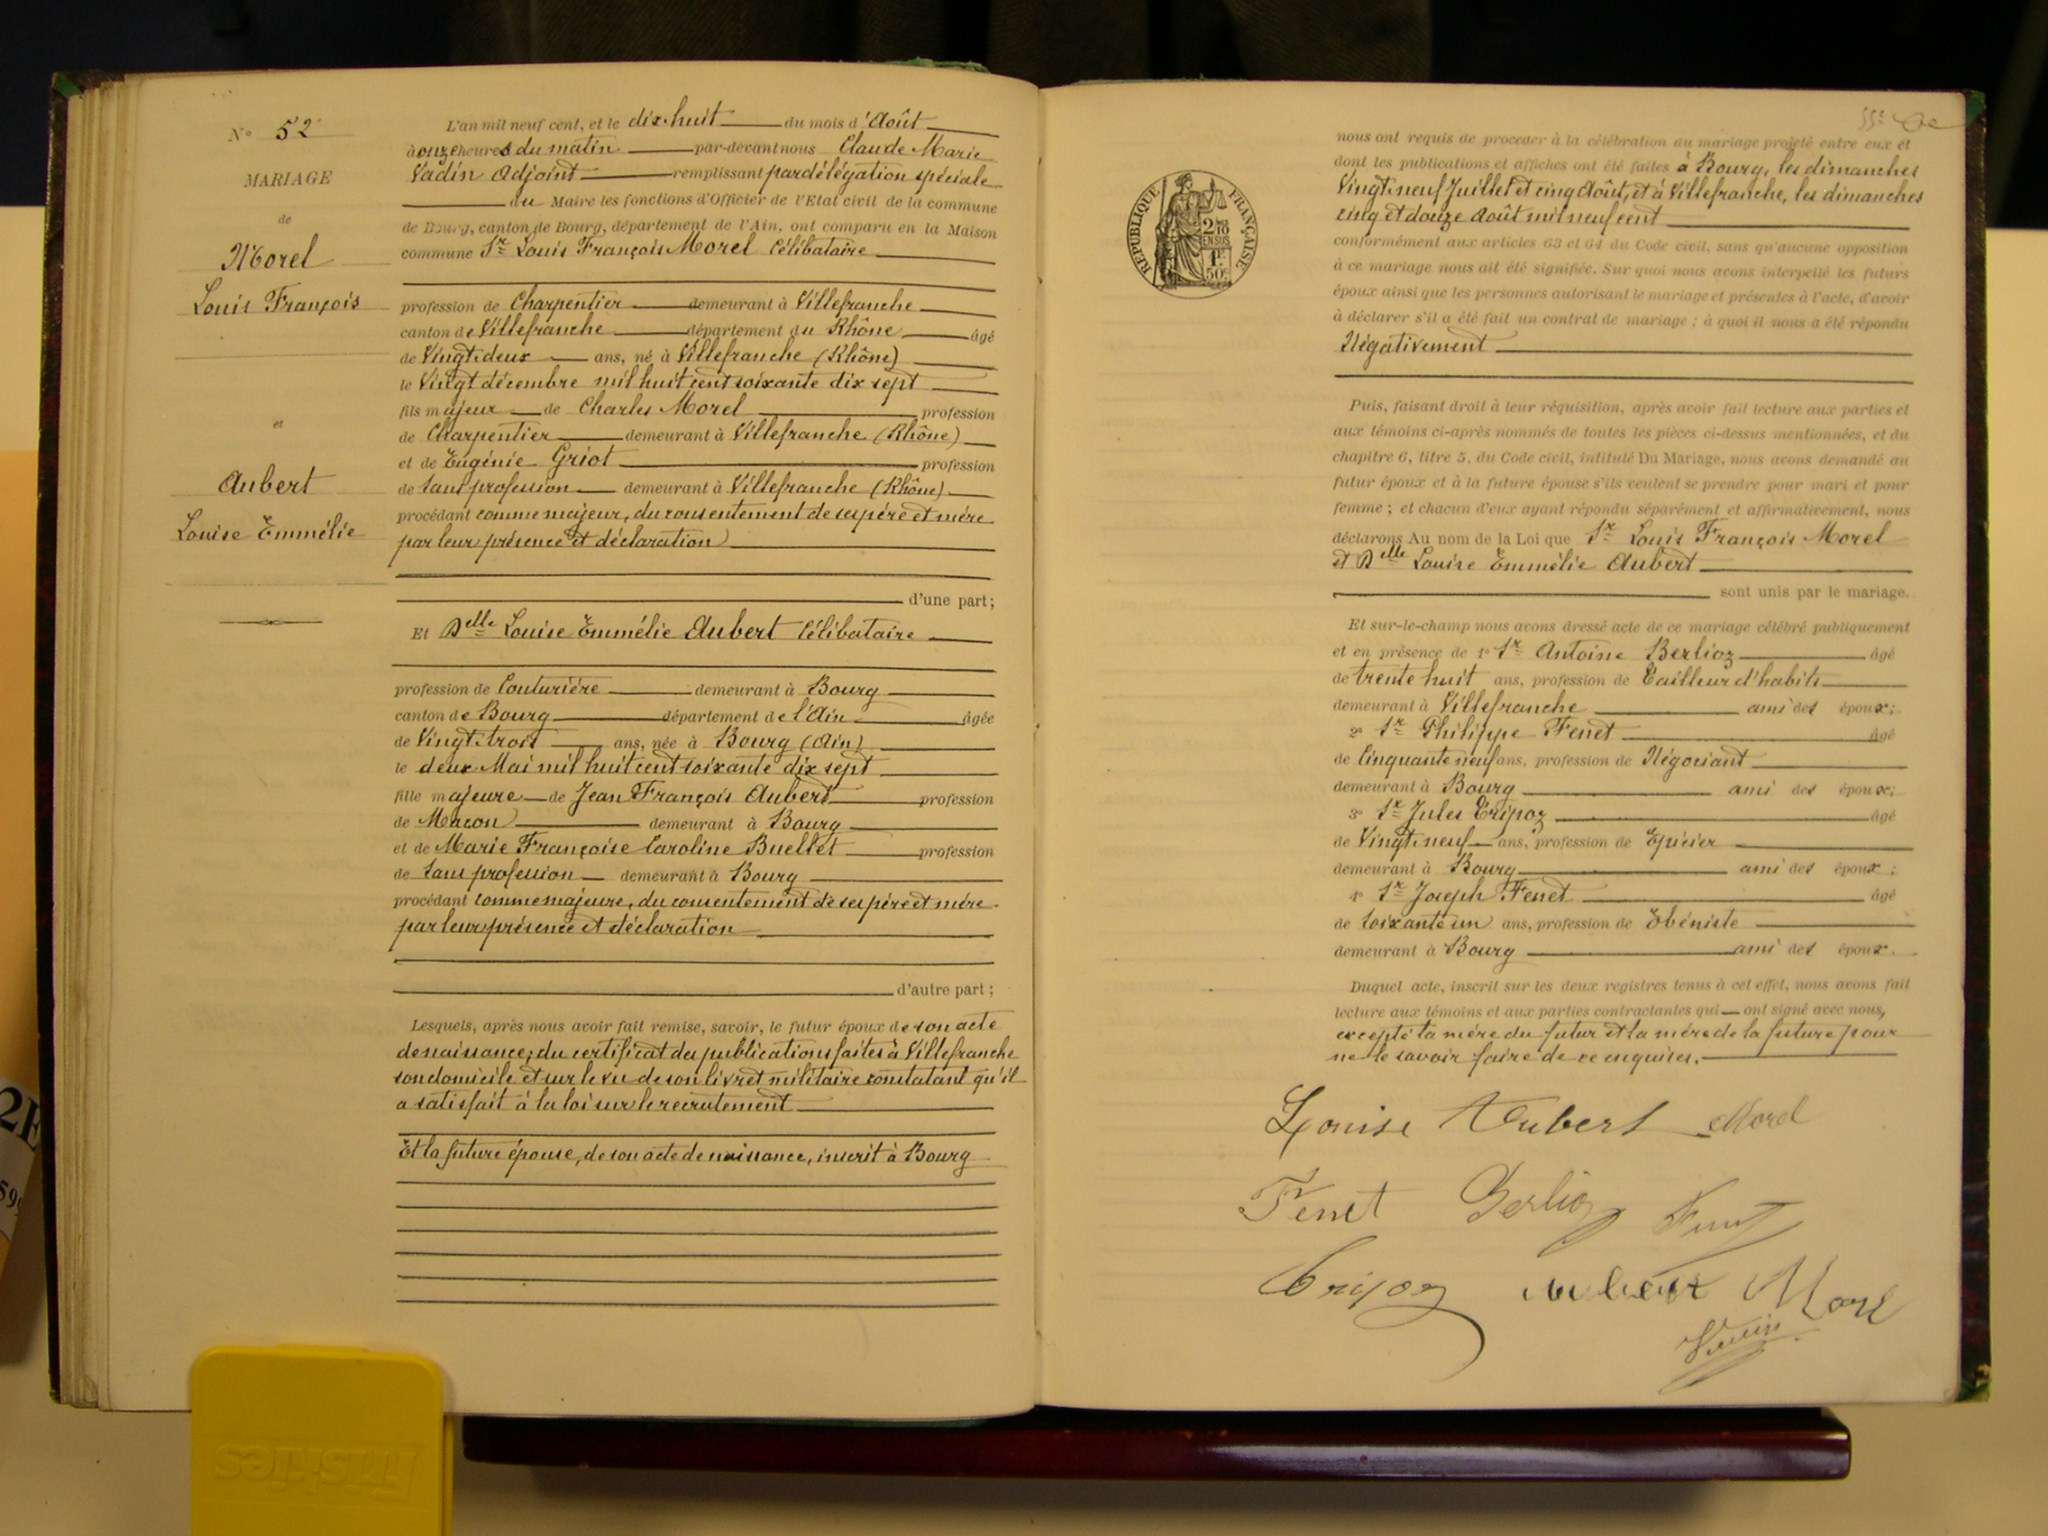 N° 52
MARIAGE
de
Morel
Louis François
et
Aubert
Louise Emmélie
L'an mil neuf cent, et le dix-huit du mois d'Août
à onze heures du matin par-devant nous Claude Marie
Vadin Adjoint remplissant par délégation spéciale
du Maire les fonctions d'Officier de l'Etat civil de la commune
de Bourg, canton de Bourg, département de l'Ain, ont comparu en la Maison
commune Sr Louis François Morel Célibataire
profession de Charpentier demeurant à Villefranche
canton de Villefranche département du Rhône âgé
de Vingt-deux ans, né à Villefranche (Rhône)
le Vingt décembre mil huit cent soixante dix sept
fils majeur de Charles Morel profession
de Charpentier demeurant à Villefranche (Rhône)
et de Eugénie Griot profession
de Sans profession demeurant à Villefranche (Rhône)
procédant comme majeur, du consentement de ses père et mère
par leur présence et déclaration
d'une part;
Et Delle Louise Emmélie Aubert Célibataire
profession de Couturière demeurant à Bourg
canton de Bourg département de l'Ain âgée
de Vingt-trois ans, née à Bourg (Ain)
le deux Mai mil huit cent soixante dix sept
fille majeure de Jean François Aubert profession
de Maçon demeurant à Bourg
et de Marie Françoise Caroline Buellet profession
de Sans profession demeurant à Bourg
procédant comme majeure, du consentement de ses père et mère
par leur présence et déclaration
d'autre part;
Lesquels, après nous avoir fait remise, savoir, le futur époux de son acte
de naissance; du certificat des publications faites à Villefranche
son domicile et sur le vu de son livret militaire constatant qu'il
a satisfait à la loi sur le recrutement
Et la future épouse, de son acte de naissance, inscrit à Bourg
RÉPUBLIQUE FRANÇAISE
2/10
EN SUS
1F
50c
nous ont requis de procéder à la célébration du mariage projeté entre eux et
dont les publications et affiches ont été faites à Bourg, les dimanches
Vingt-neuf Juillet et cinq Août, et à Villefranche, les dimanches
cinq et douze Août mil neuf cent
conformément aux articles 63 et 64 du Code civil, sans qu'aucune opposition
à ce mariage nous ait été signifiée. Sur quoi nous avons interpellé les futurs
époux ainsi que les personnes autorisant le mariage et présentes à l'acte, d'avoir
à déclarer s'il a été fait un contrat de mariage; à quoi il nous a été répondu
Négativement
Puis, faisant droit à leur réquisition, après avoir fait lecture aux parties et
aux témoins ci-après nommés de toutes les pièces ci-dessus mentionnées, et du
chapitre 6, titre 5, du Code civil, intitulé Du Mariage, nous avons demandé au
futur époux et à la future épouse s'ils veulent se prendre pour mari et pour
femme; et chacun d'eux ayant répondu séparément et affirmativement, nous
déclarons Au nom de la Loi que Sr Louis François Morel
et Delle Louise Emmélie Aubert
sont unis par le mariage.
Et sur-le-champ nous avons dressé acte de ce mariage célébré publiquement
et en présence de 1° Sr Antoine Berlioz âgé
de trente huit ans, profession de Tailleur d'habits
demeurant à Villefranche ami des époux;
2° Sr Philippe Fenet âgé
de Cinquante neuf ans, profession de Négociant
demeurant à Bourg ami des époux;
3° Sr Jules Cripoz âgé
de Vingt-neuf ans, profession de Epicier
demeurant à Bourg ami des époux;
4° Sr Joseph Fenet âgé
de Soixante un ans, profession de Ebéniste
demeurant à Bourg ami des époux.
Duquel acte, inscrit sur les deux registres tenus à cet effet, nous avons fait
lecture aux témoins et aux parties contractantes qui ont signé avec nous,
excepté la mère du futur et la mère de la future pour
ne le savoir faire de ce enquises.
Louise Aubert Morel
Fenet Berlioz Fenet
Cripoz Aubert Morel
Vadin